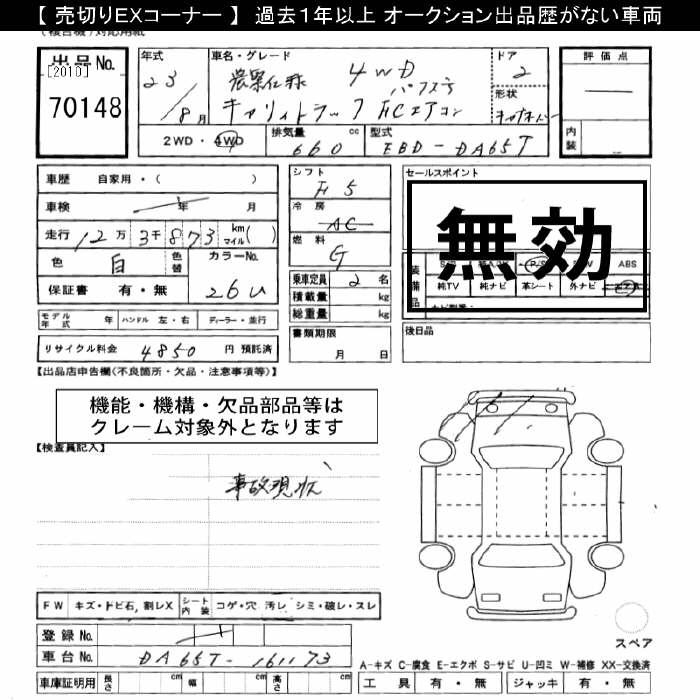 【 売切りEXコーナー 】 過去1年以上 オークション出品歴がない車両
(複合機)対応用紙
出品No.
[2010]
70148
年式
23/8月
車名・グレード
農業仕様 4WD
キャリイトラック FCエアコン パワステ
ドア
2
形状
評価点
内装
2WD・4WD
排気量
660cc
型式
EBD-DA65T
車歴 自家用・( )
車検 年 月
走行 12万3千873 km マイル( )
色 白 色替
カラーNo. 26U
保証書 有・無
シフト
F5
冷房
AC
燃料
G
乗車定員 2 名
積載量 kg
総重量 kg
書類期限
月 日
セールスポイント
無効
装備品
P/S
ABS
純TV 純ナビ 革シート 外ナビ
後日品
モデル年式 年 ハンドル 左・右 ディーラー・並行
リサイクル料金 4850 円 預託済
【出品店申告欄(不良箇所・欠品・注意事項等)】
機能・機構・欠品部品等は
クレーム対象外となります
【検査員記入】
事故現状
FW キズ・トビ石,割レX シート内装 コゲ・穴 汚レ シミ・破レ・スレ
登録No.
車台No. DA65T-161173
車庫証明用 長さ cm 幅 cm 高さ cm
スペア
A-キズ C-腐食 E-エクボ S-サビ U-凹ミ W-補修 XX-交換済
工具 有・無 ジャッキ 有・無